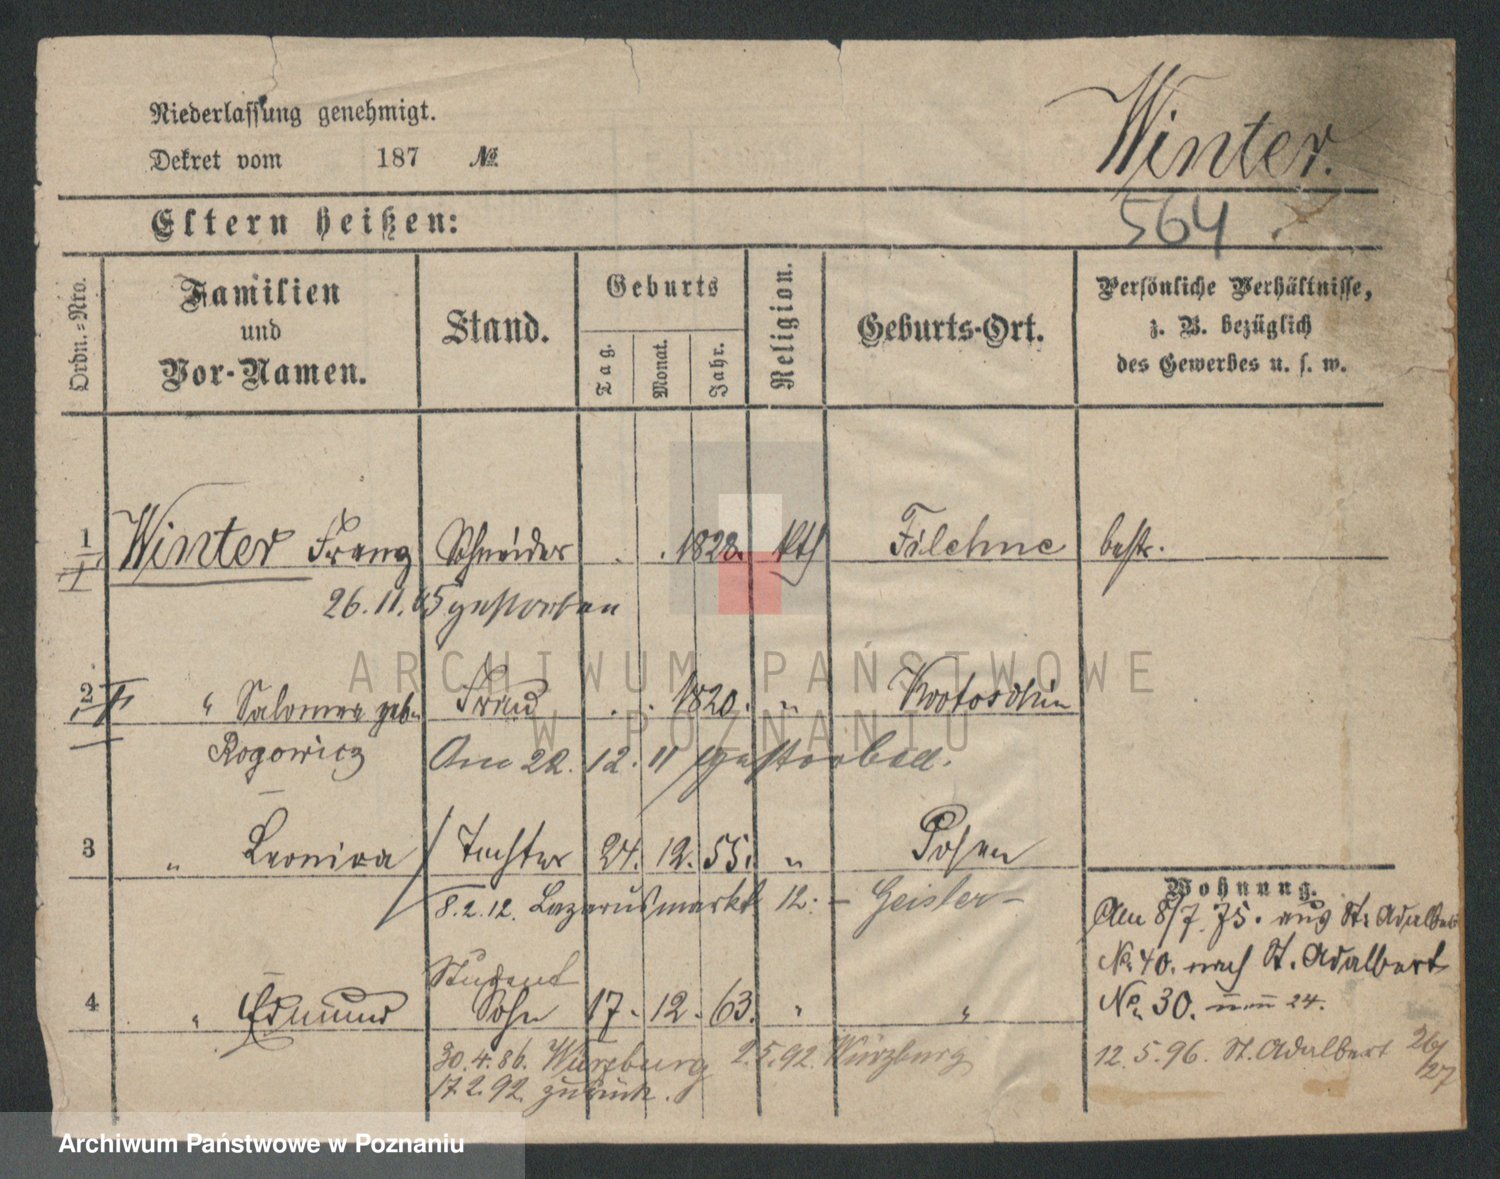 Niederlassung genehmigt.
Dekret vom 187 №
Winter.
564
Eltern heißen:
Ordn.=Nro.
Familien
und
Vor-Namen.
Stand.
Geburts
Tag.
Monat.
Jahr.
Religion.
Geburts-Ort.
Persönliche Verhältnisse,
z. B. bezüglich
des Gewerbes u. s. w.
1 Winter Franz Schneider . . 1828. kth Filehne bestr.
I
26.11.05 gestorben
2 II " Salomea geb. Frau . . 1820. " Krotoschin
Rogowicz Am 22.12.11 gestorben.
3 " Leonira Tochter 24. 12. 55. " Posen
8.2.12. Lazarusmarkt 12: - Geisler -
Wohnung.
Am 8/7. 75. aus St. Adalbert
No. 40. nach St. Adalbert
No. 30. 24.
Student
4 " Edmund Sohn 17. 12. 63. " "
30.4.86. Würzburg 2.5.92. Würzburg
17.2.92. zurück.
12.5.96. St. Adalbert 26/27
ARCHIWUM PAŃSTWOWE
W POZNANIU
Archiwum Państwowe w Poznaniu